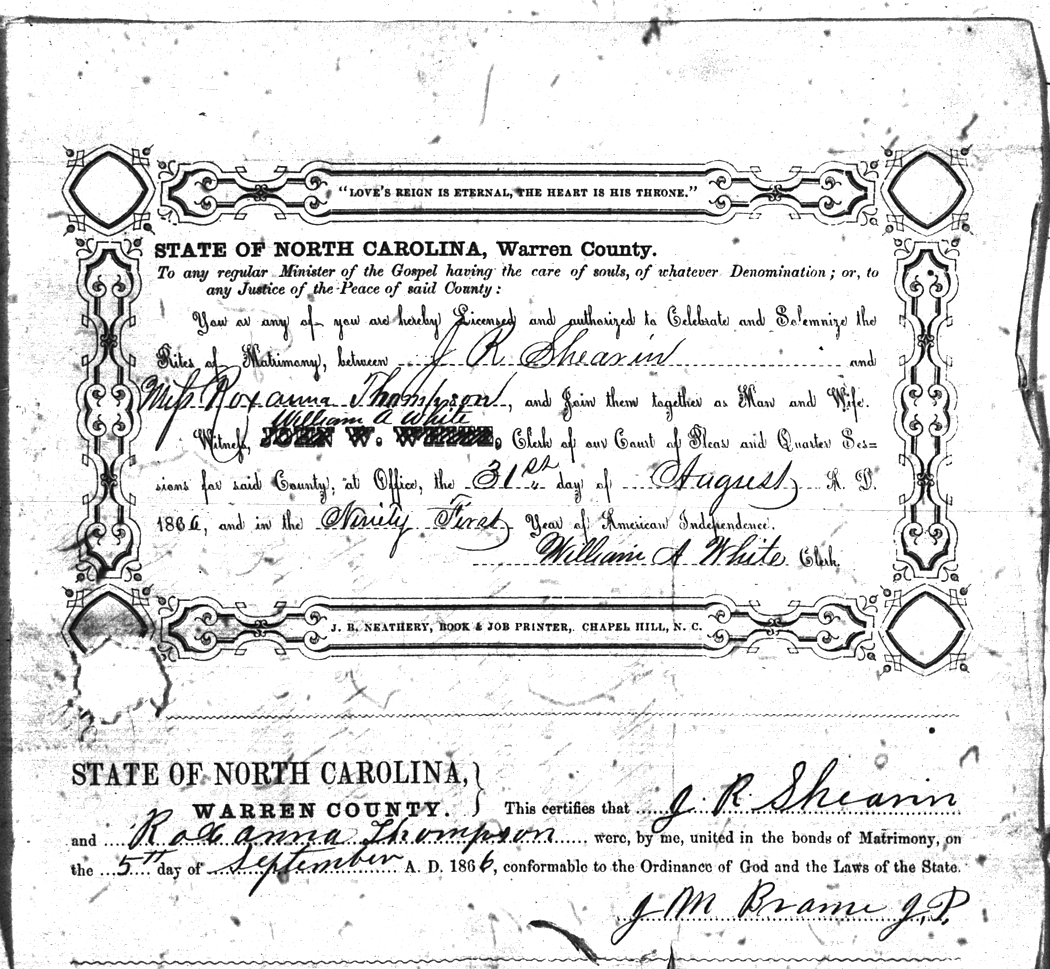 "LOVE'S REIGN IS ETERNAL, THE HEART IS HIS THRONE."
STATE OF NORTH CAROLINA, Warren County.
To any regular Minister of the Gospel having the care of souls, of whatever Denomination; or, to
any Justice of the Peace of said County:
You or any of you are hereby Licensed and authorized to Celebrate and Solemnize the
Rites of Matrimony, between J R Shearin and
Miss Roxanna Thompson, and Join them together as Man and Wife.
William A White
Witness, JOHN W. WHITE, Clerk of our Court of Pleas and Quarter Ses=
sions for said County, at Office, the 31st day of August A. D.
1866, and in the Ninety First Year of American Independence.
William A White Clerk.
J. B. NEATHERY, BOOK & JOB PRINTER, CHAPEL HILL, N. C.
STATE OF NORTH CAROLINA,
WARREN COUNTY. This certifies that J. R Shearin
and Roxanna Thompson were, by me, united in the bonds of Matrimony, on
the 5th day of September A. D. 1866, conformable to the Ordinance of God and the Laws of the State.
J M Brame J.P.